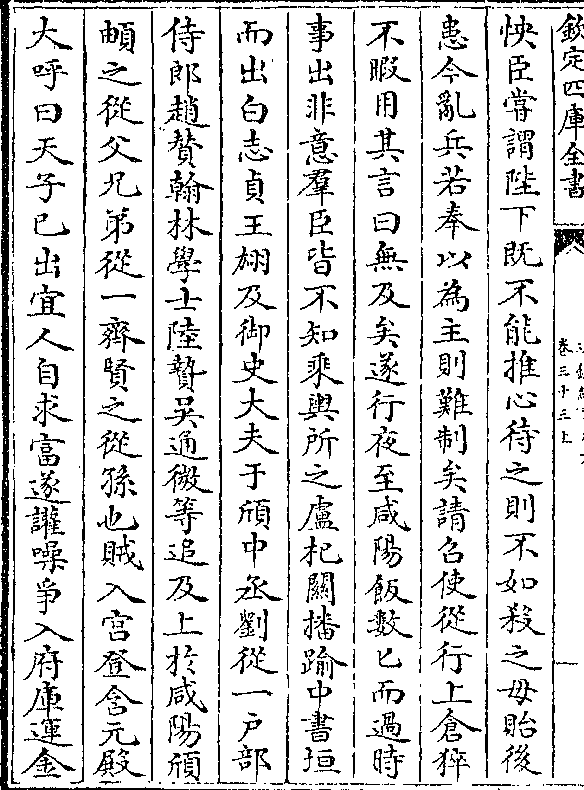 欽定四庫全書
卷三十三上
怏臣嘗謂陛下既不能推心待之則不如殺之毋貽後
患今亂兵若奉以為主則難制矣請召使從行上倉猝
不暇用其言曰無及矣遂行夜至咸陽飯數匕而過時
事出非意羣臣皆不知乘輿所之盧杞關播踰中書垣
而出白志貞王翃及御史大夫于頎中丞劉從一户部
侍郎趙贊翰林學士陸贄吴通微等追及上於咸陽頎
頔之從父兄弟從一齊賢之從孫也賊入宫登含元殿
大呼曰天子已出宜人自求富遂讙噪爭入府庫運金